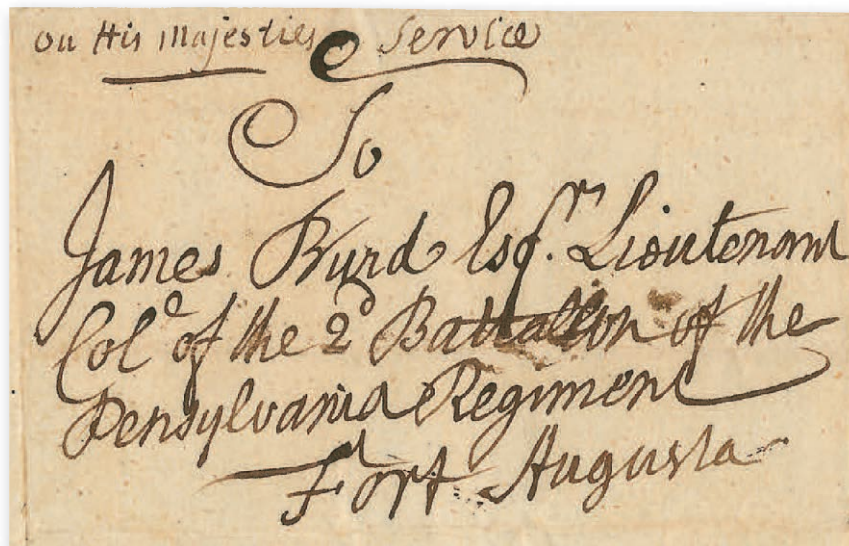 on His Majesties Service
To
James Burd Esqr. Lieutenant
Colo of the 2d Battallion of the
Pensylvania Regiment
Fort Augusta